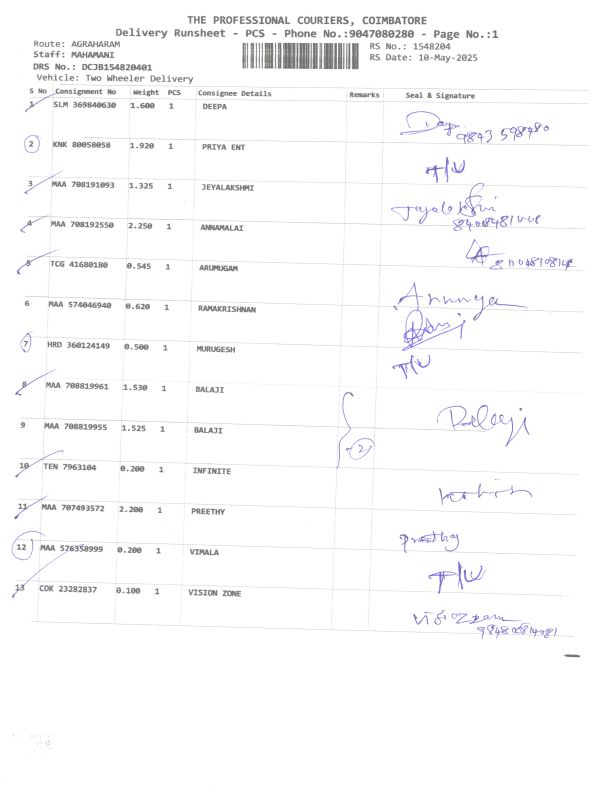 THE PROFESSIONAL COURIERS, COIMBATORE
Delivery Runsheet - PCS - Phone No.:9047080280 - Page No.:1
Route: AGRAHARAM RS No.: 1548204
Staff: MAHAMANI RS Date: 10-May-2025
DRS No.: DCJB154820401
Vehicle: Two Wheeler Delivery
S No Consignment No Weight PCS Consignee Details Remarks Seal & Signature
1 SLM 369840630 1.600 1 DEEPA
9843 598480
2 KNK 80058058 1.920 1 PRIYA ENT
T/U
3 MAA 708191093 1.325 1 JEYALAKSHMI
4 MAA 708192550 2.250 1 ANNAMALAI
5 TCG 41680180 0.545 1 ARUMUGAM
6 MAA 574046940 0.620 1 RAMAKRISHNAN
7 HRD 360124149 0.500 1 MURUGESH
T/U
8 MAA 708819961 1.530 1 BALAJI
9 MAA 708819955 1.525 1 BALAJI
2
10 TEN 7963104 0.200 1 INFINITE
11 MAA 707493572 2.200 1 PREETHY
preethy
12 MAA 576358999 0.200 1 VIMALA
T/U
13 COK 23282837 0.100 1 VISION ZONE